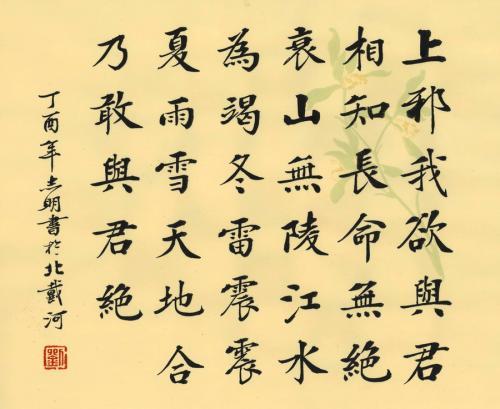 上邪我欲與君
相知長命無絕
衰山無陵江水
為竭冬雷震震
夏雨雪天地合
乃敢與君絕
丁酉年志明書於北戴河
劉